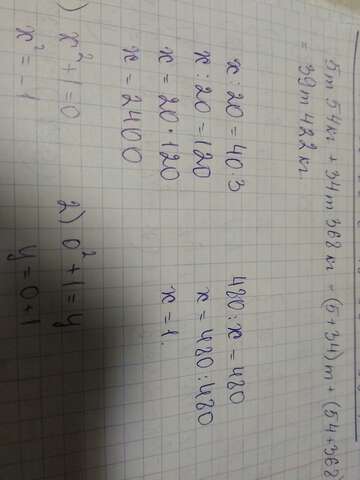 5т 54кг + 34т 368кг = (5+34)т + (54+368)
= 39т 422кг.
x : 20 = 40·3
x : 20 = 120
x = 20·120
x = 2400
480 : x = 480
x = 480 : 480
x = 1.
) x² + 1 = 0
x² = -1
2) 0² + 1 = y
y = 0 + 1